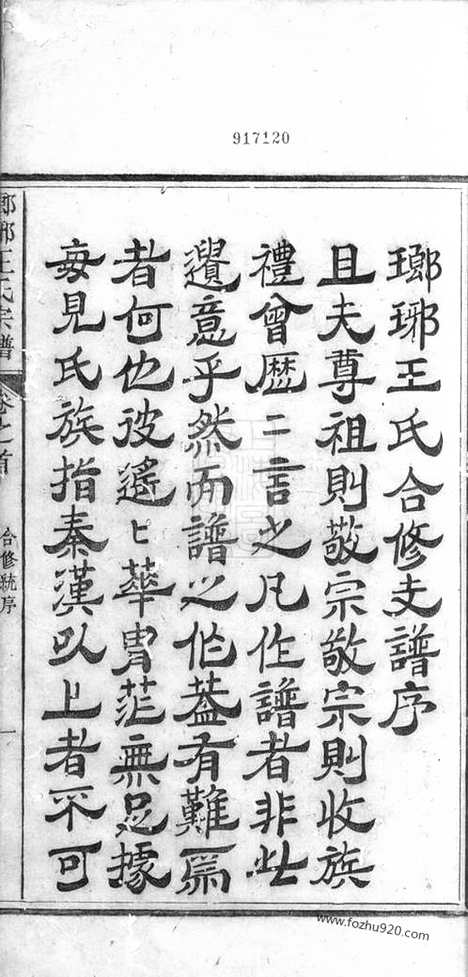 917120
瑯琊王氏合修支譜序
且夫尊祖則敬宗敬宗則收族
禮曾歷二言之凡作譜者非此
遺意乎然而譜之作葢有難焉
者何也彼遙〻華胄茫無足據
每見氏族指秦漢以上者不可
瑯琊王氏宗譜
卷之首
合修統序
一
www.fozhu920.com